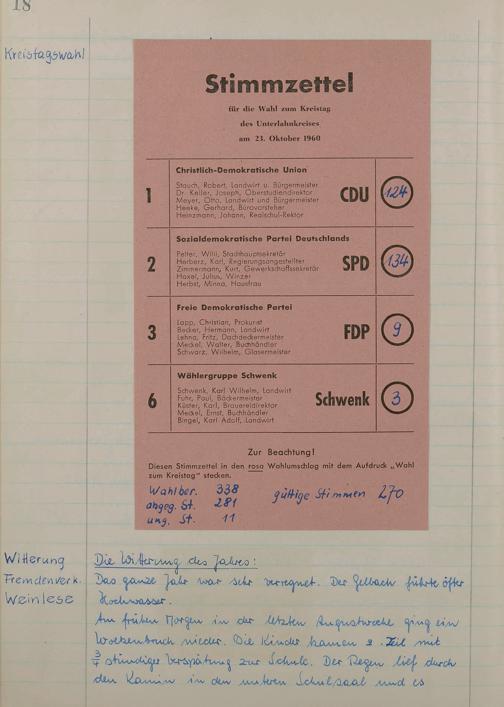 18
Kreistagswahl
Stimmzettel
für die Wahl zum Kreistag
des Unterlahnkreises
am 23. Oktober 1960
1
Christlich-Demokratische Union
Stauch, Robert, Landwirt u. Bürgermeister
Dr. Keller, Joseph, Oberstudiendirektor
Meyer, Otto, Landwirt und Bürgermeister
Heeke, Gerhard, Bürovorsteher
Heinzmann, Johann, Realschul-Rektor
CDU
124
2
Sozialdemokratische Partei Deutschlands
Pelter, Willi, Stadthauptsekretär
Herberz, Karl, Regierungsangestellter
Zimmermann, Kurt, Gewerkschaftssekretär
Haxel, Julius, Winzer
Herbst, Minna, Hausfrau
SPD
134
3
Freie Demokratische Partei
Lapp, Christian, Prokurist
Becker, Hermann, Landwirt
Lehna, Fritz, Dachdeckermeister
Meckel, Walter, Buchhändler
Schwarz, Wilhelm, Glasermeister
FDP
9
6
Wählergruppe Schwenk
Schwenk, Karl Wilhelm, Landwirt
Fuhr, Paul, Bäckermeister
Küster, Karl, Brauereidirektor
Meckel, Ernst, Buchhändler
Bingel, Karl Adolf, Landwirt
Schwenk
3
Zur Beachtung!
Diesen Stimmzettel in den rosa Wahlumschlag mit dem Aufdruck „Wahl
zum Kreistag" stecken.
Wahlber. 338
abgeg. St. 281
ung. St. 11
gültige Stimmen 270
Witterung
Fremdenverk.
Weinlese
Die Witterung des Jahres:
Das ganze Jahr war sehr verregnet. Der Gelbach führte öfter
Hochwasser.
Am frühen Morgen in der letzten Augustwoche ging ein
Wolkenbruch nieder. Die Kinder kamen z. Teil mit
3/4 stündiger Verspätung zur Schule. Der Regen lief durch
den Kamin in den unteren Schulsaal und es